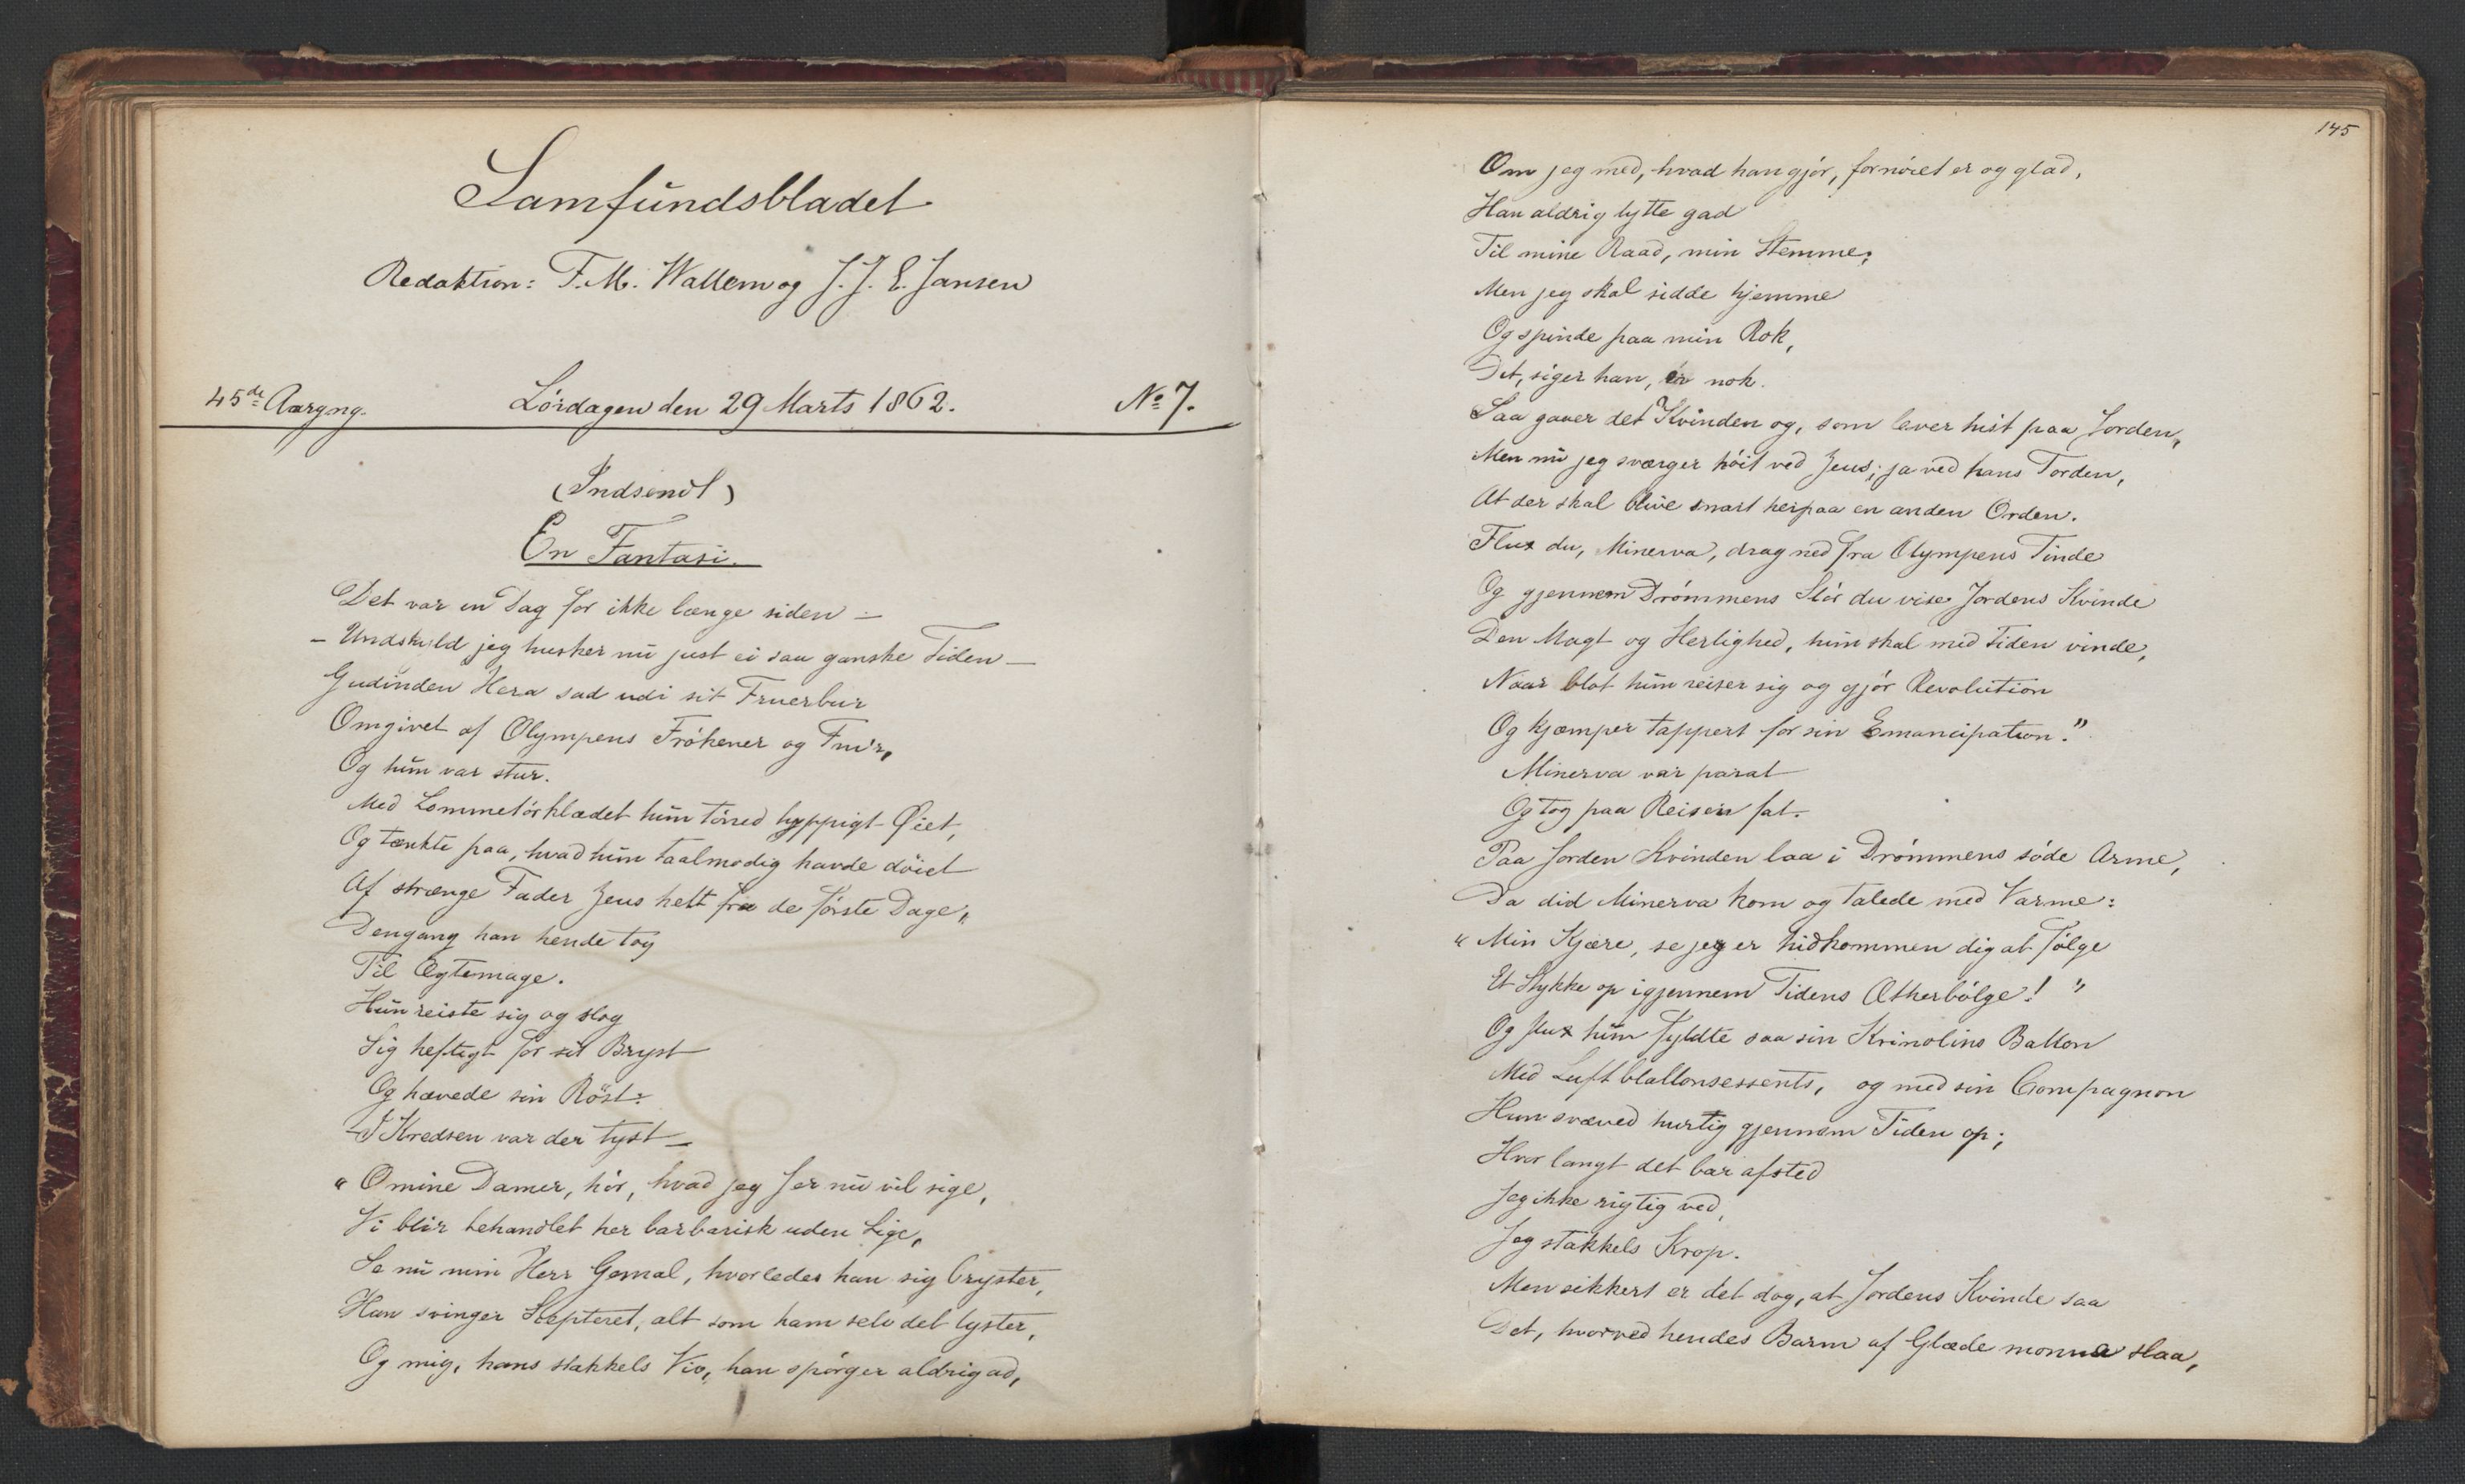 Samfundsbladet
Redaktion: F. M. Wallem og J. J. E. Jansen
45de Aargng. Lördagen den 29 Marts 1862. No 7.
(Indsendt)
En Fantasi.
Det var en Dag for ikke længe siden —
— Undskyld jeg husker nu just ei saa ganske Tiden —
Gudinden Hera sad udi sit Fruerbur
Omgivet af Olympens Frökener og Fru'r,
Og hun var stur.
Med Lommetörklædet hun törred hyppigt Øiet,
Og tænkte paa, hvad hun taalmodig havde döiet
Af strænge Fader Zeus helt fra de förste Dage,
Dengang han hende tog
Til Ægtemage.
Hun reiste sig og slog
Sig heftigt for sit Bryst
Og hævede sin Röst:
— I Kredsen var der tyst —
"O mine Damer, hör, hvad jeg Jer nu vil sige,
Vi blir behandlet her barbarisk uden Lige,
Se nu min Herr Gemal, hvorledes han sig bryster,
Han svinger Scepteret, alt som ham selv det lyster,
Og mig, hans stakkels Viv, han spörger aldrig ad,
145
Om jeg med, hvad han gjör, fornöiet er og glad,
Han aldrig lytte gad
Til mine Raad, min Stemme;
Men jeg skal sidde hjemme
Og spinde paa min Rok,
Det, siger han, er nok.
Saa gaaer det Kvinden og, som lever hist paa Jorden,
Men nu jeg sværger höit ved Zeus, ja ved hans Torden,
At der skal blive snart herpaa en anden Orden.
Flux du, Minerva, drag ned fra Olympens Tinde
Og gjennem Drömmens Slör du vise Jordens Kvinde
Den Magt og Herlighed, hun skal med Tiden vinde,
Naar blot hun reiser sig og gjör Revolution
Og kjæmper tappert for sin Emancipation."
Minerva var parat
Og tog paa Reisen fat.
Paa Jorden Kvinden laa i Drömmens söde Arme,
Da did Minerva kom og talede med Varme:
"Min Kjære, se jeg er hidkommen dig at fölge
Et Stykke op igjennem Tidens Ætherbölge!"
Og flux hun fyldte saa sin Krinolins Ballon
Med Luftblallonsessents, og med sin Compagnon
Hun svæved hurtig gjennem Tiden op;
Hvor langt det bar afsted
Jeg ikke rigtig ved,
Jeg stakkels Krop.
Men sikkert er det dog, at Jordens Kvinde saa
Det, hvorved hendes Barm af Glæde monne slaa,